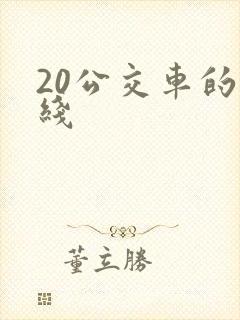 20公交車的
綫
董立勝